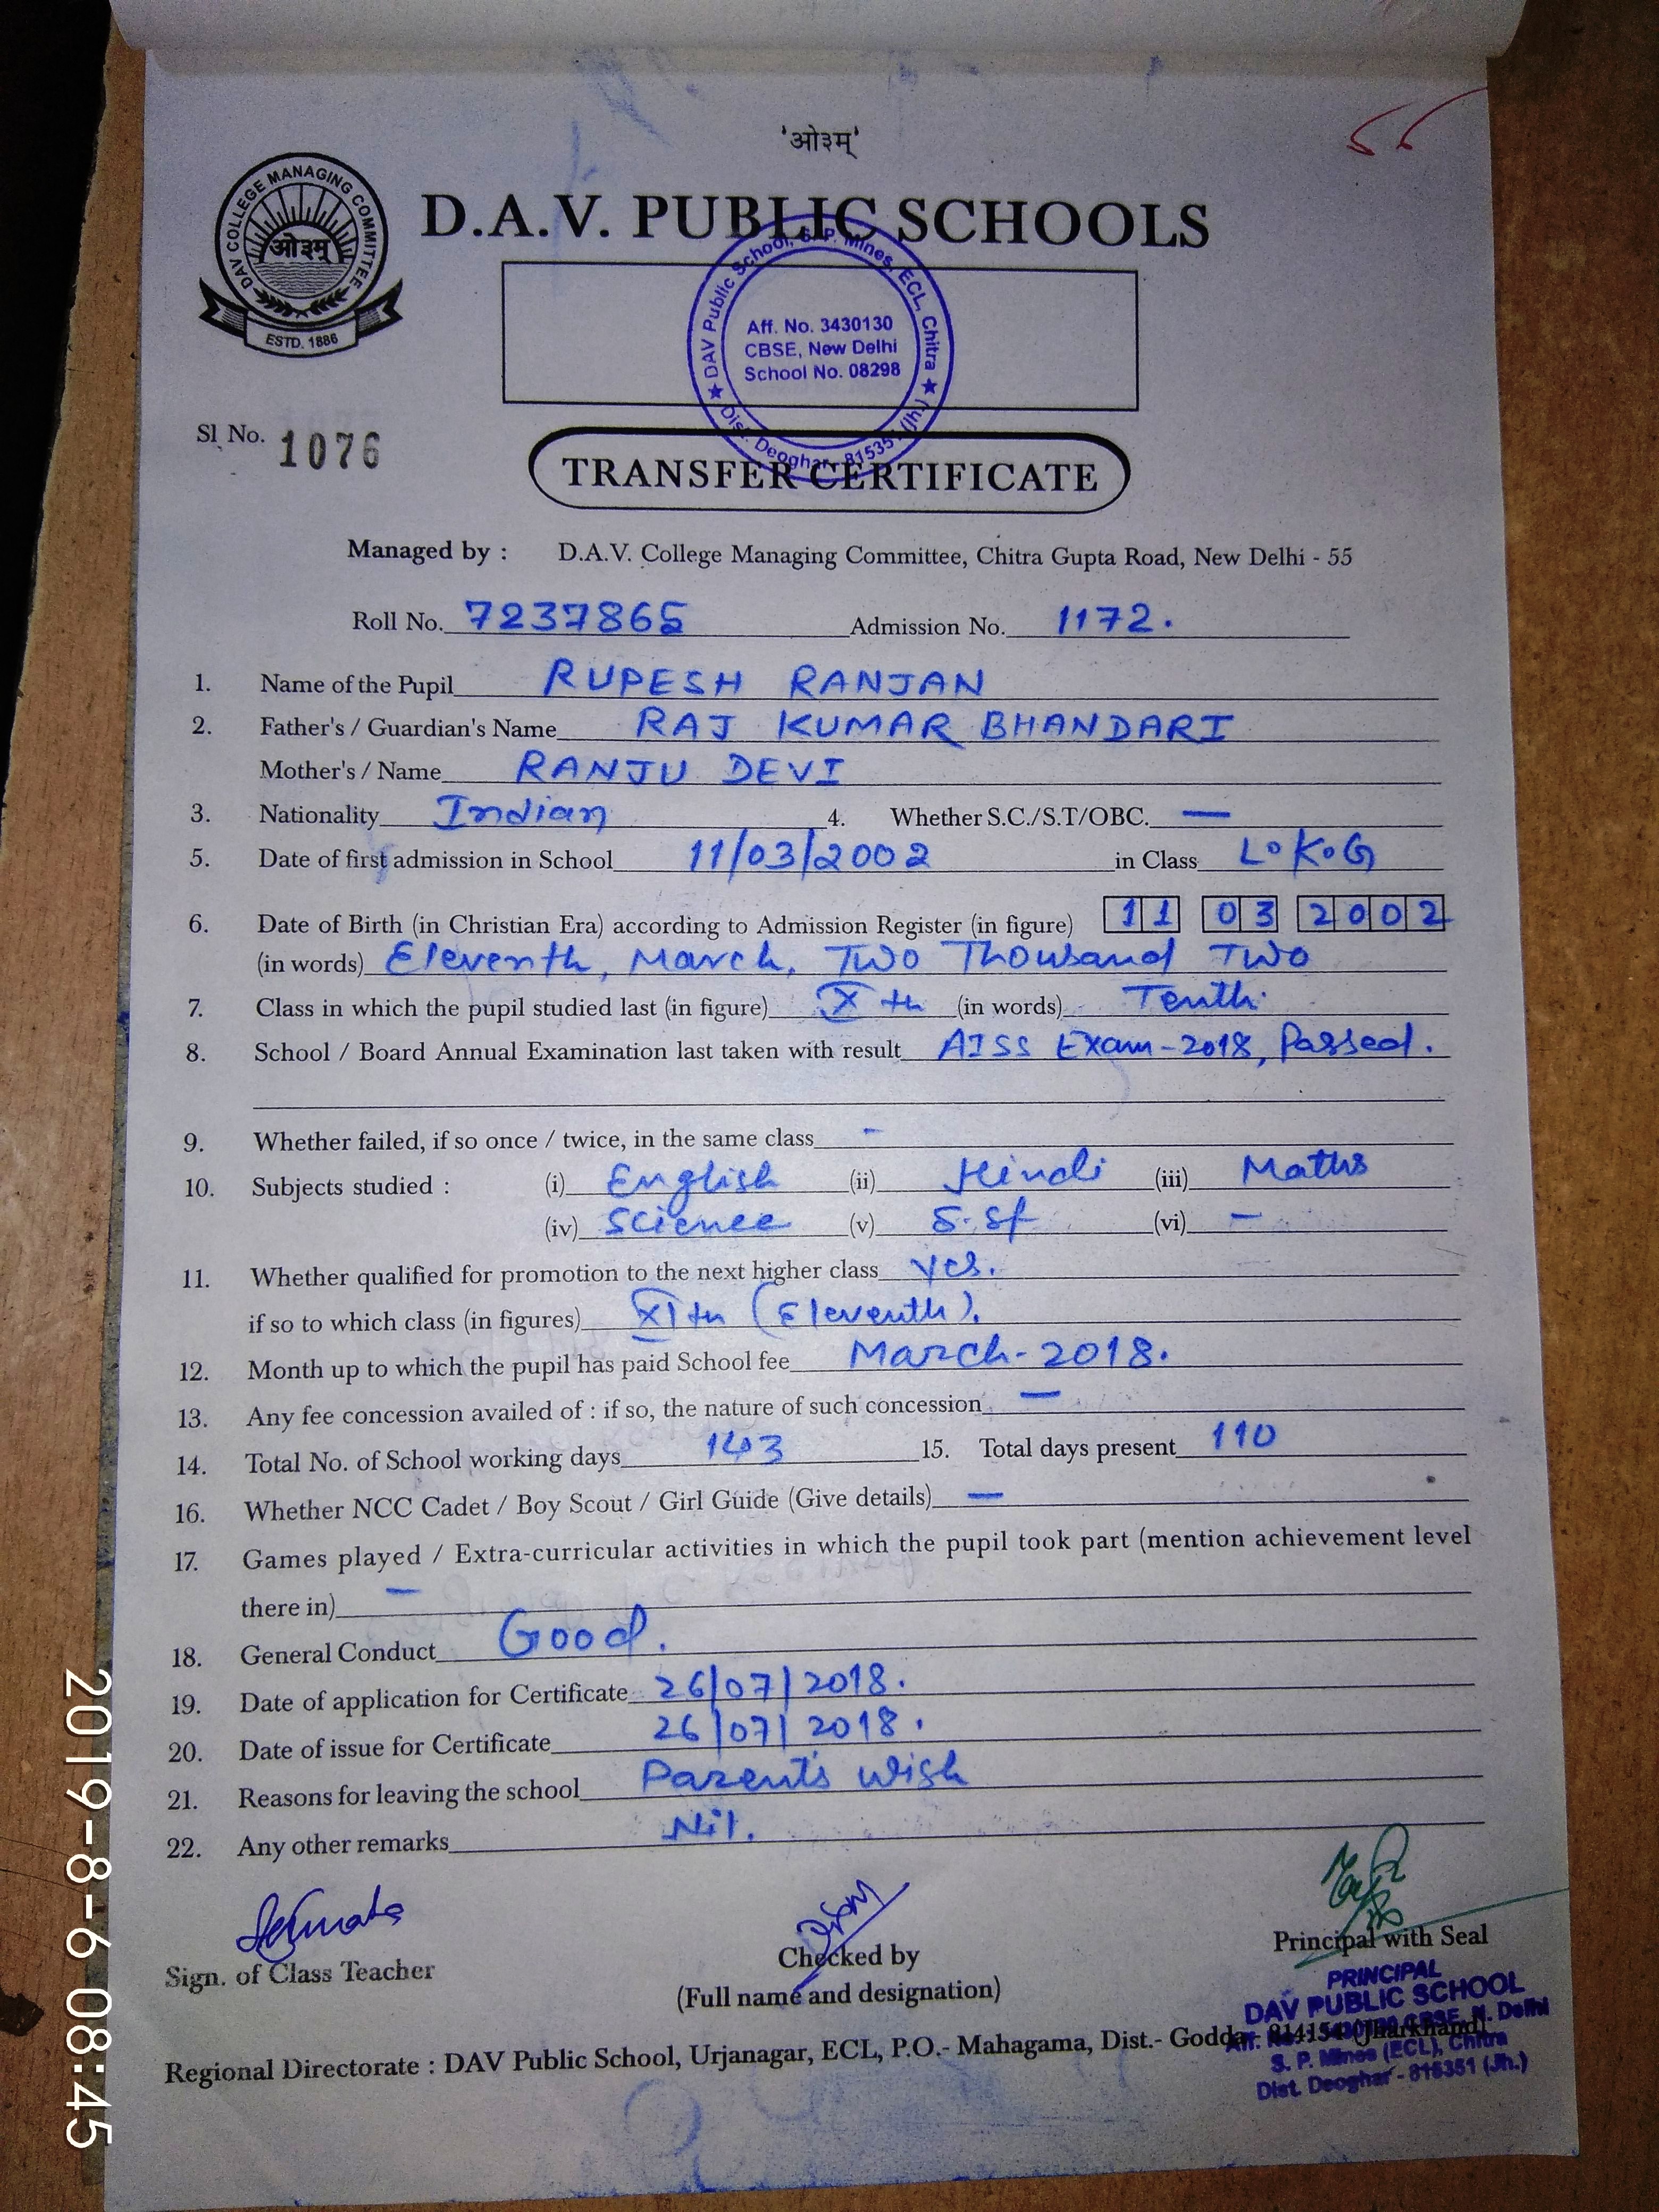 'ओ३म्'
56
DAV COLLEGE MANAGING COMMITTEE
ओ३म्
ESTD. 1886
D.A.V. PUBLIC SCHOOLS
DAV Public School, S. P. Mines, ECL, Chitra
Aff. No. 3430130
CBSE, New Delhi
School No. 08298
Dist. Deoghar - 815351 (Jh.)
Sl No. 1076
TRANSFER CERTIFICATE
Managed by : D.A.V. College Managing Committee, Chitra Gupta Road, New Delhi - 55
Roll No. 7237865 Admission No. 1172.
1. Name of the Pupil RUPESH RANJAN
2. Father's / Guardian's Name RAJ KUMAR BHANDARI
Mother's / Name RANJU DEVI
3. Nationality Indian 4. Whether S.C./S.T/OBC. —
5. Date of first admission in School 11/03/2002 in Class L.K.G
6. Date of Birth (in Christian Era) according to Admission Register (in figure) 11 03 2002
(in words) Eleventh, March, Two Thousand Two
7. Class in which the pupil studied last (in figure) Xth (in words) Tenth.
8. School / Board Annual Examination last taken with result AISS Exam-2018, Passed.
9. Whether failed, if so once / twice, in the same class -
10. Subjects studied : (i) English (ii) Hindi (iii) Maths
(iv) Science (v) S.St (vi) -
11. Whether qualified for promotion to the next higher class yes.
if so to which class (in figures) XIth (Eleventh).
12. Month up to which the pupil has paid School fee March-2018.
13. Any fee concession availed of : if so, the nature of such concession —
14. Total No. of School working days 143 15. Total days present 110
16. Whether NCC Cadet / Boy Scout / Girl Guide (Give details) —
17. Games played / Extra-curricular activities in which the pupil took part (mention achievement level
there in) -
18. General Conduct Good.
19. Date of application for Certificate 26/07/2018.
20. Date of issue for Certificate 26/07/2018.
21. Reasons for leaving the school Parent's wish
22. Any other remarks Nil.
Sign. of Class Teacher
Checked by
(Full name and designation)
Principal with Seal
PRINCIPAL
DAV PUBLIC SCHOOL
Aff. No. 3430130 CBSE, N. Delhi
S. P. Mines (ECL), Chitra
Dist. Deoghar - 815351 (Jh.)
Regional Directorate : DAV Public School, Urjanagar, ECL, P.O.- Mahagama, Dist.- Godda - 814154 (Jharkhand)
2019-8-6 08:45